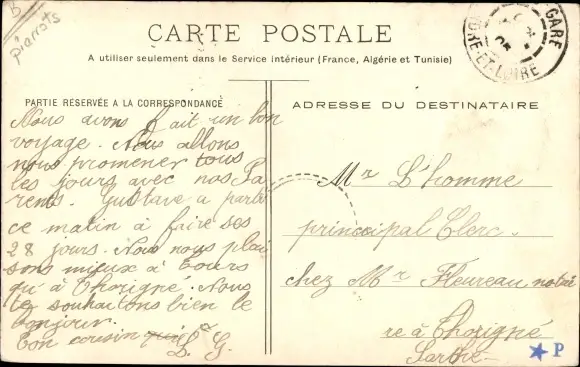 pierrots
CARTE POSTALE
A utiliser seulement dans le Service intérieur (France, Algérie et Tunisie)
GARE
RE-ET-LOIRE
PARTIE RÉSERVÉE A LA CORRESPONDANCE
Nous avons fait un bon
voyage. Nous allons
nous promener tous
les jours avec nos Pa
rents. Gustave a parti
ce matin à faire ses
28 jours. Nous nous plai
sons mieux à Tours
qu'à Thorigné. Nous
te souhaitons bien le
bonjour.
Ton cousin
L. G.
ADRESSE DU DESTINATAIRE
Mr L'homme
principal Clerc.
chez Mr Fleureau notai
re à Thorigné
Sarthe
P